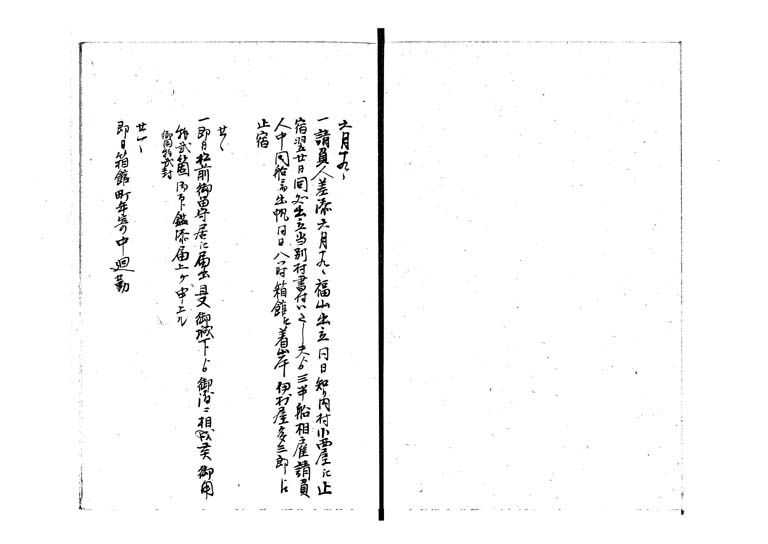 六月十九日
一請負人差添六月十九日福山出立同日知り内村小西屋に止
宿翌廿日同所出立当別村書付いたし夫より三半船相雇請負
人中同船に而出帆同日八つ時箱館に着岸伊村屋多三郎に
止宿
廿日
一即日松前御留守居に届出且又御城下より御渡に相成候御用
物弐箇御印鑑添届上ケ申上ル
御用物弐封
廿一日
即日箱館町年寄中廻勤